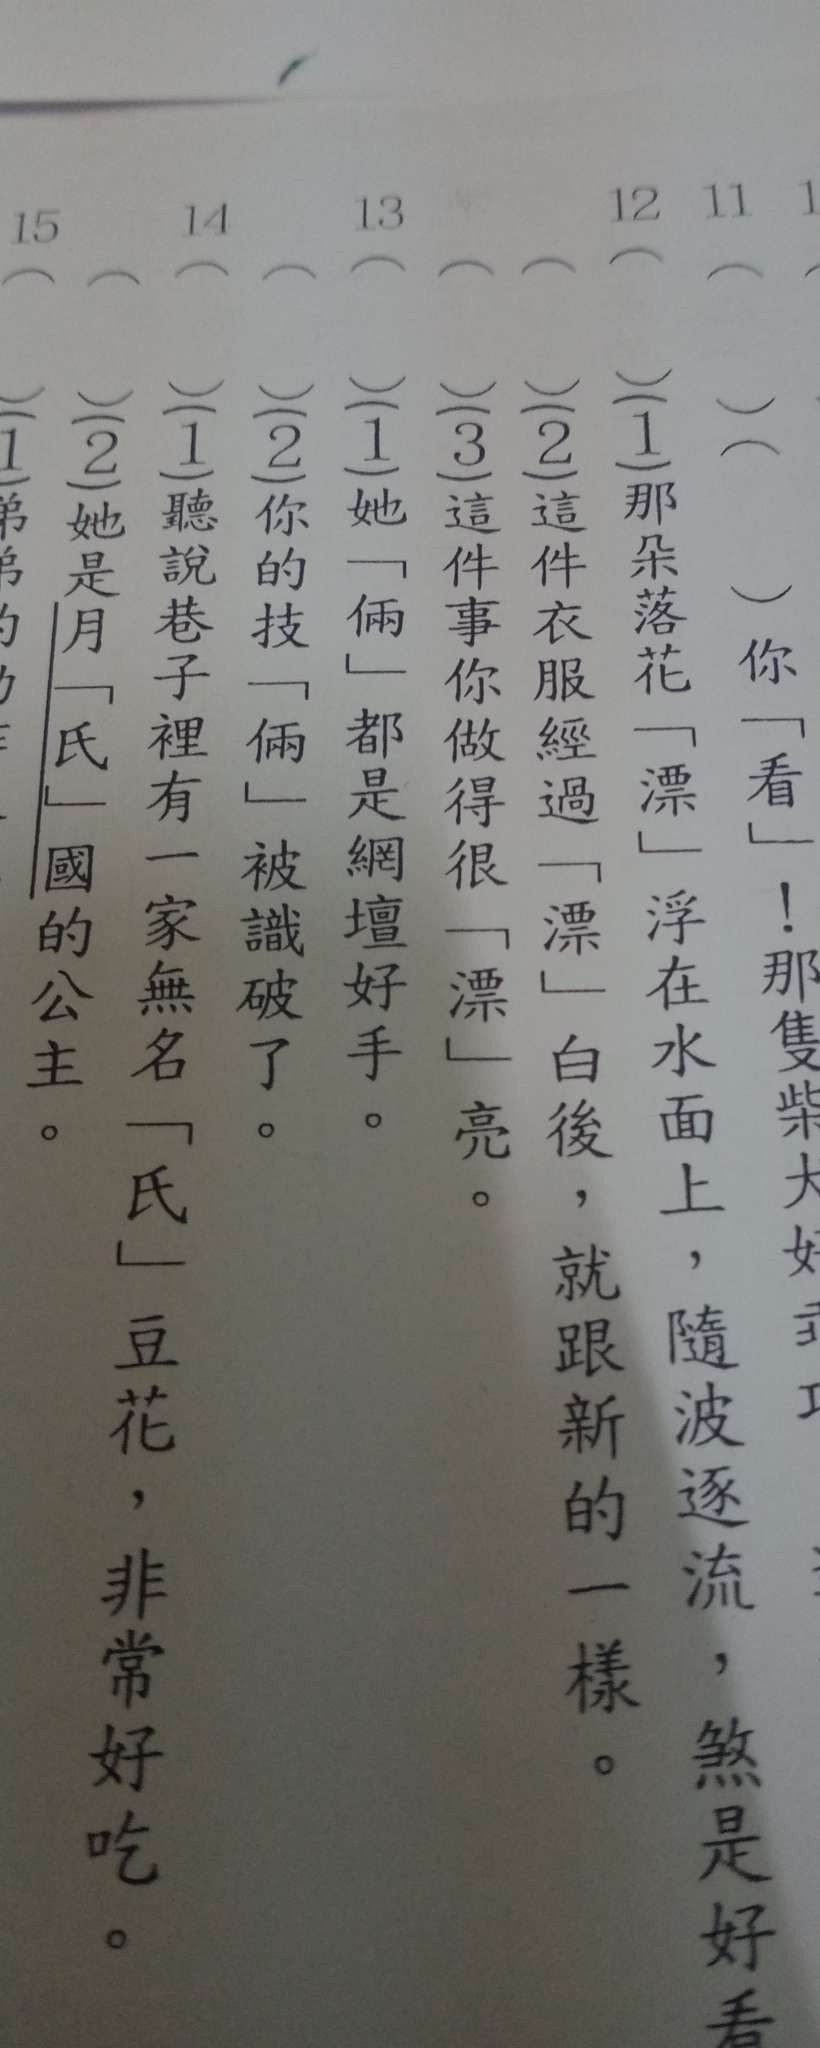 11（　）（　）你「看」！那隻柴犬好乖巧
12（　）(1)那朵落花「漂」浮在水面上，隨波逐流，煞是好看
（　）(2)這件衣服經過「漂」白後，就跟新的一樣。
（　）(3)這件事你做得很「漂」亮。
13（　）(1)她「倆」都是網壇好手。
（　）(2)你的技「倆」被識破了。
14（　）(1)聽說巷子裡有一家無名「氏」豆花，非常好吃。
（　）(2)她是月「氏」國的公主。
15（　）(1)弟弟的動作